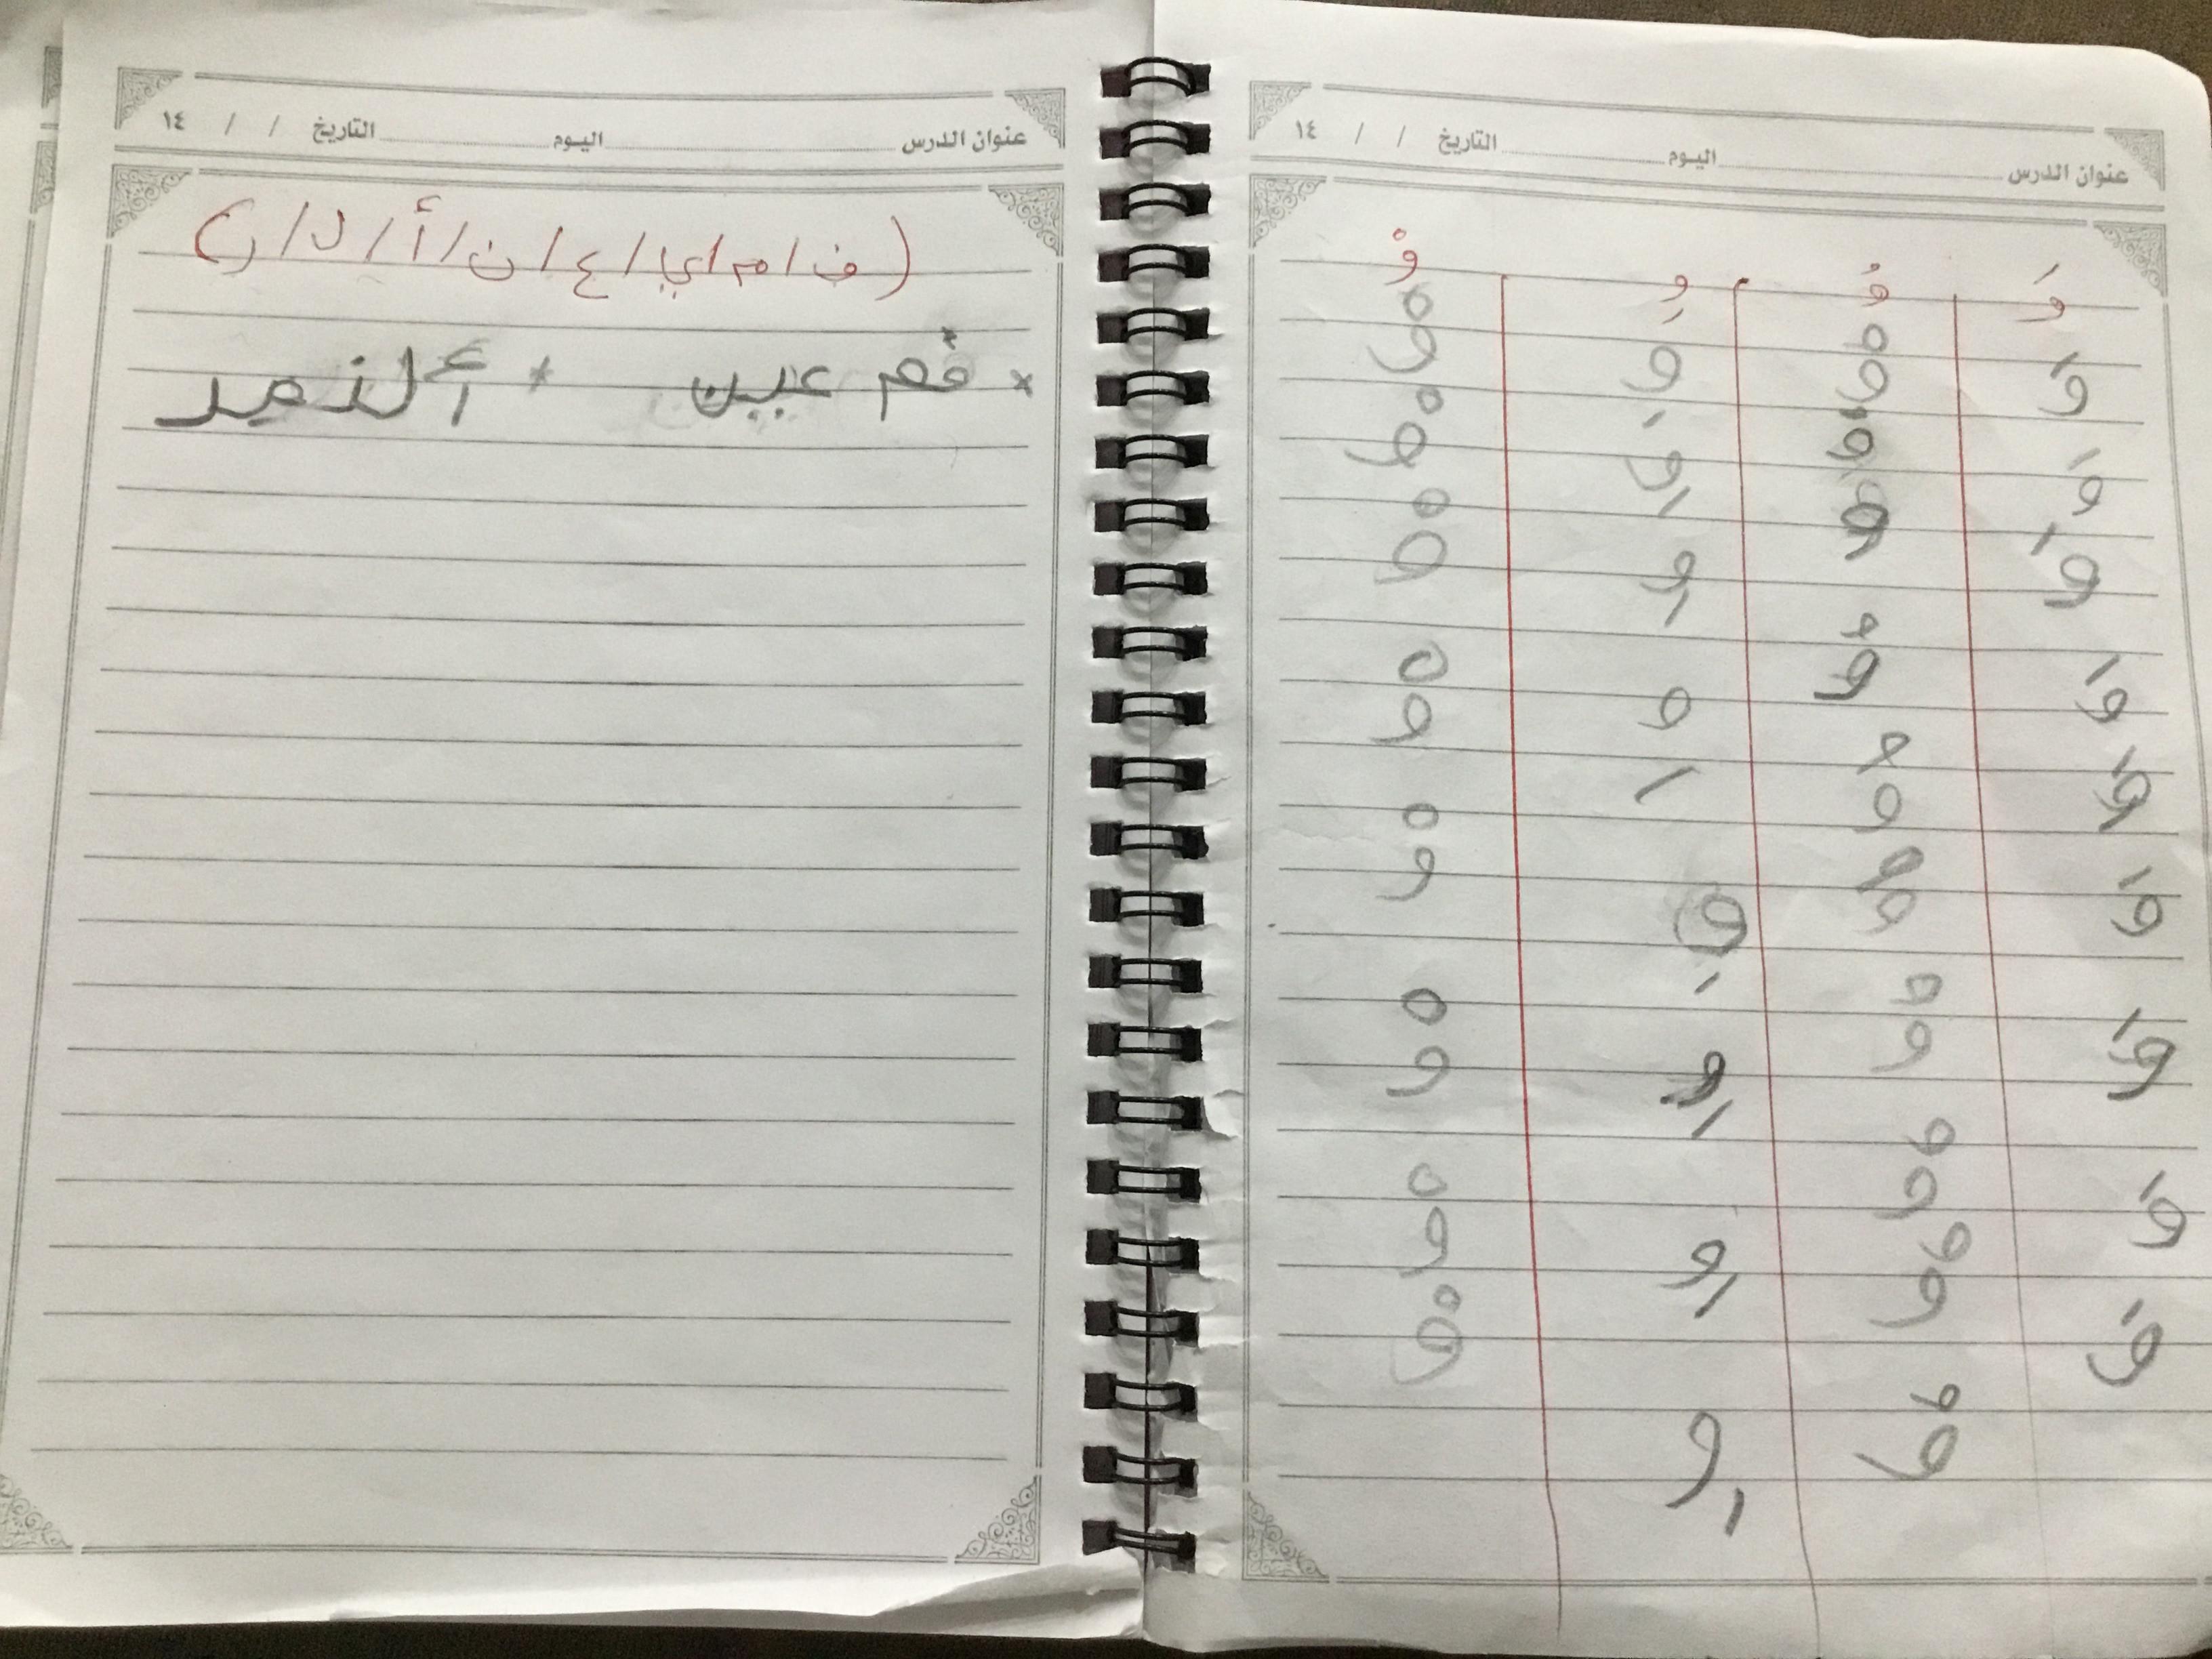 عنوان الدرس اليوم التاريخ / / ١٤
وَ وُ وِ وْ
وَ وُ وِ وْ
وَ وُ وِ وْ
وَ وُ وِ وْ
وَ وُ وِ وْ
وَ وُ وِ وْ
وَ وُ وِ وْ
وَ وُ وِ وْ
وَ وُ وِ وْ
وَ وُ
عنوان الدرس اليوم التاريخ / / ١٤
(ف / م / ي / ع / ن / أ / ل / ر)
* فم عين * ألنمر